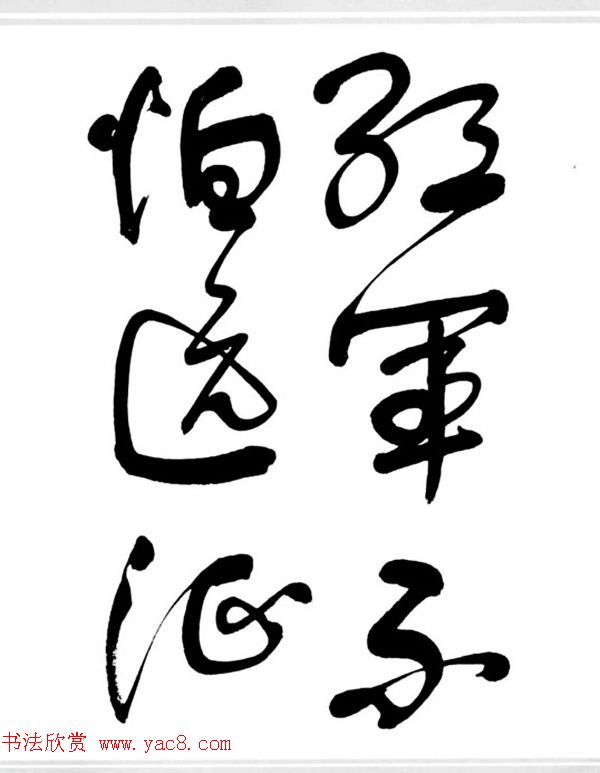 红军不
怕远征
书法欣赏 www.yac8.com